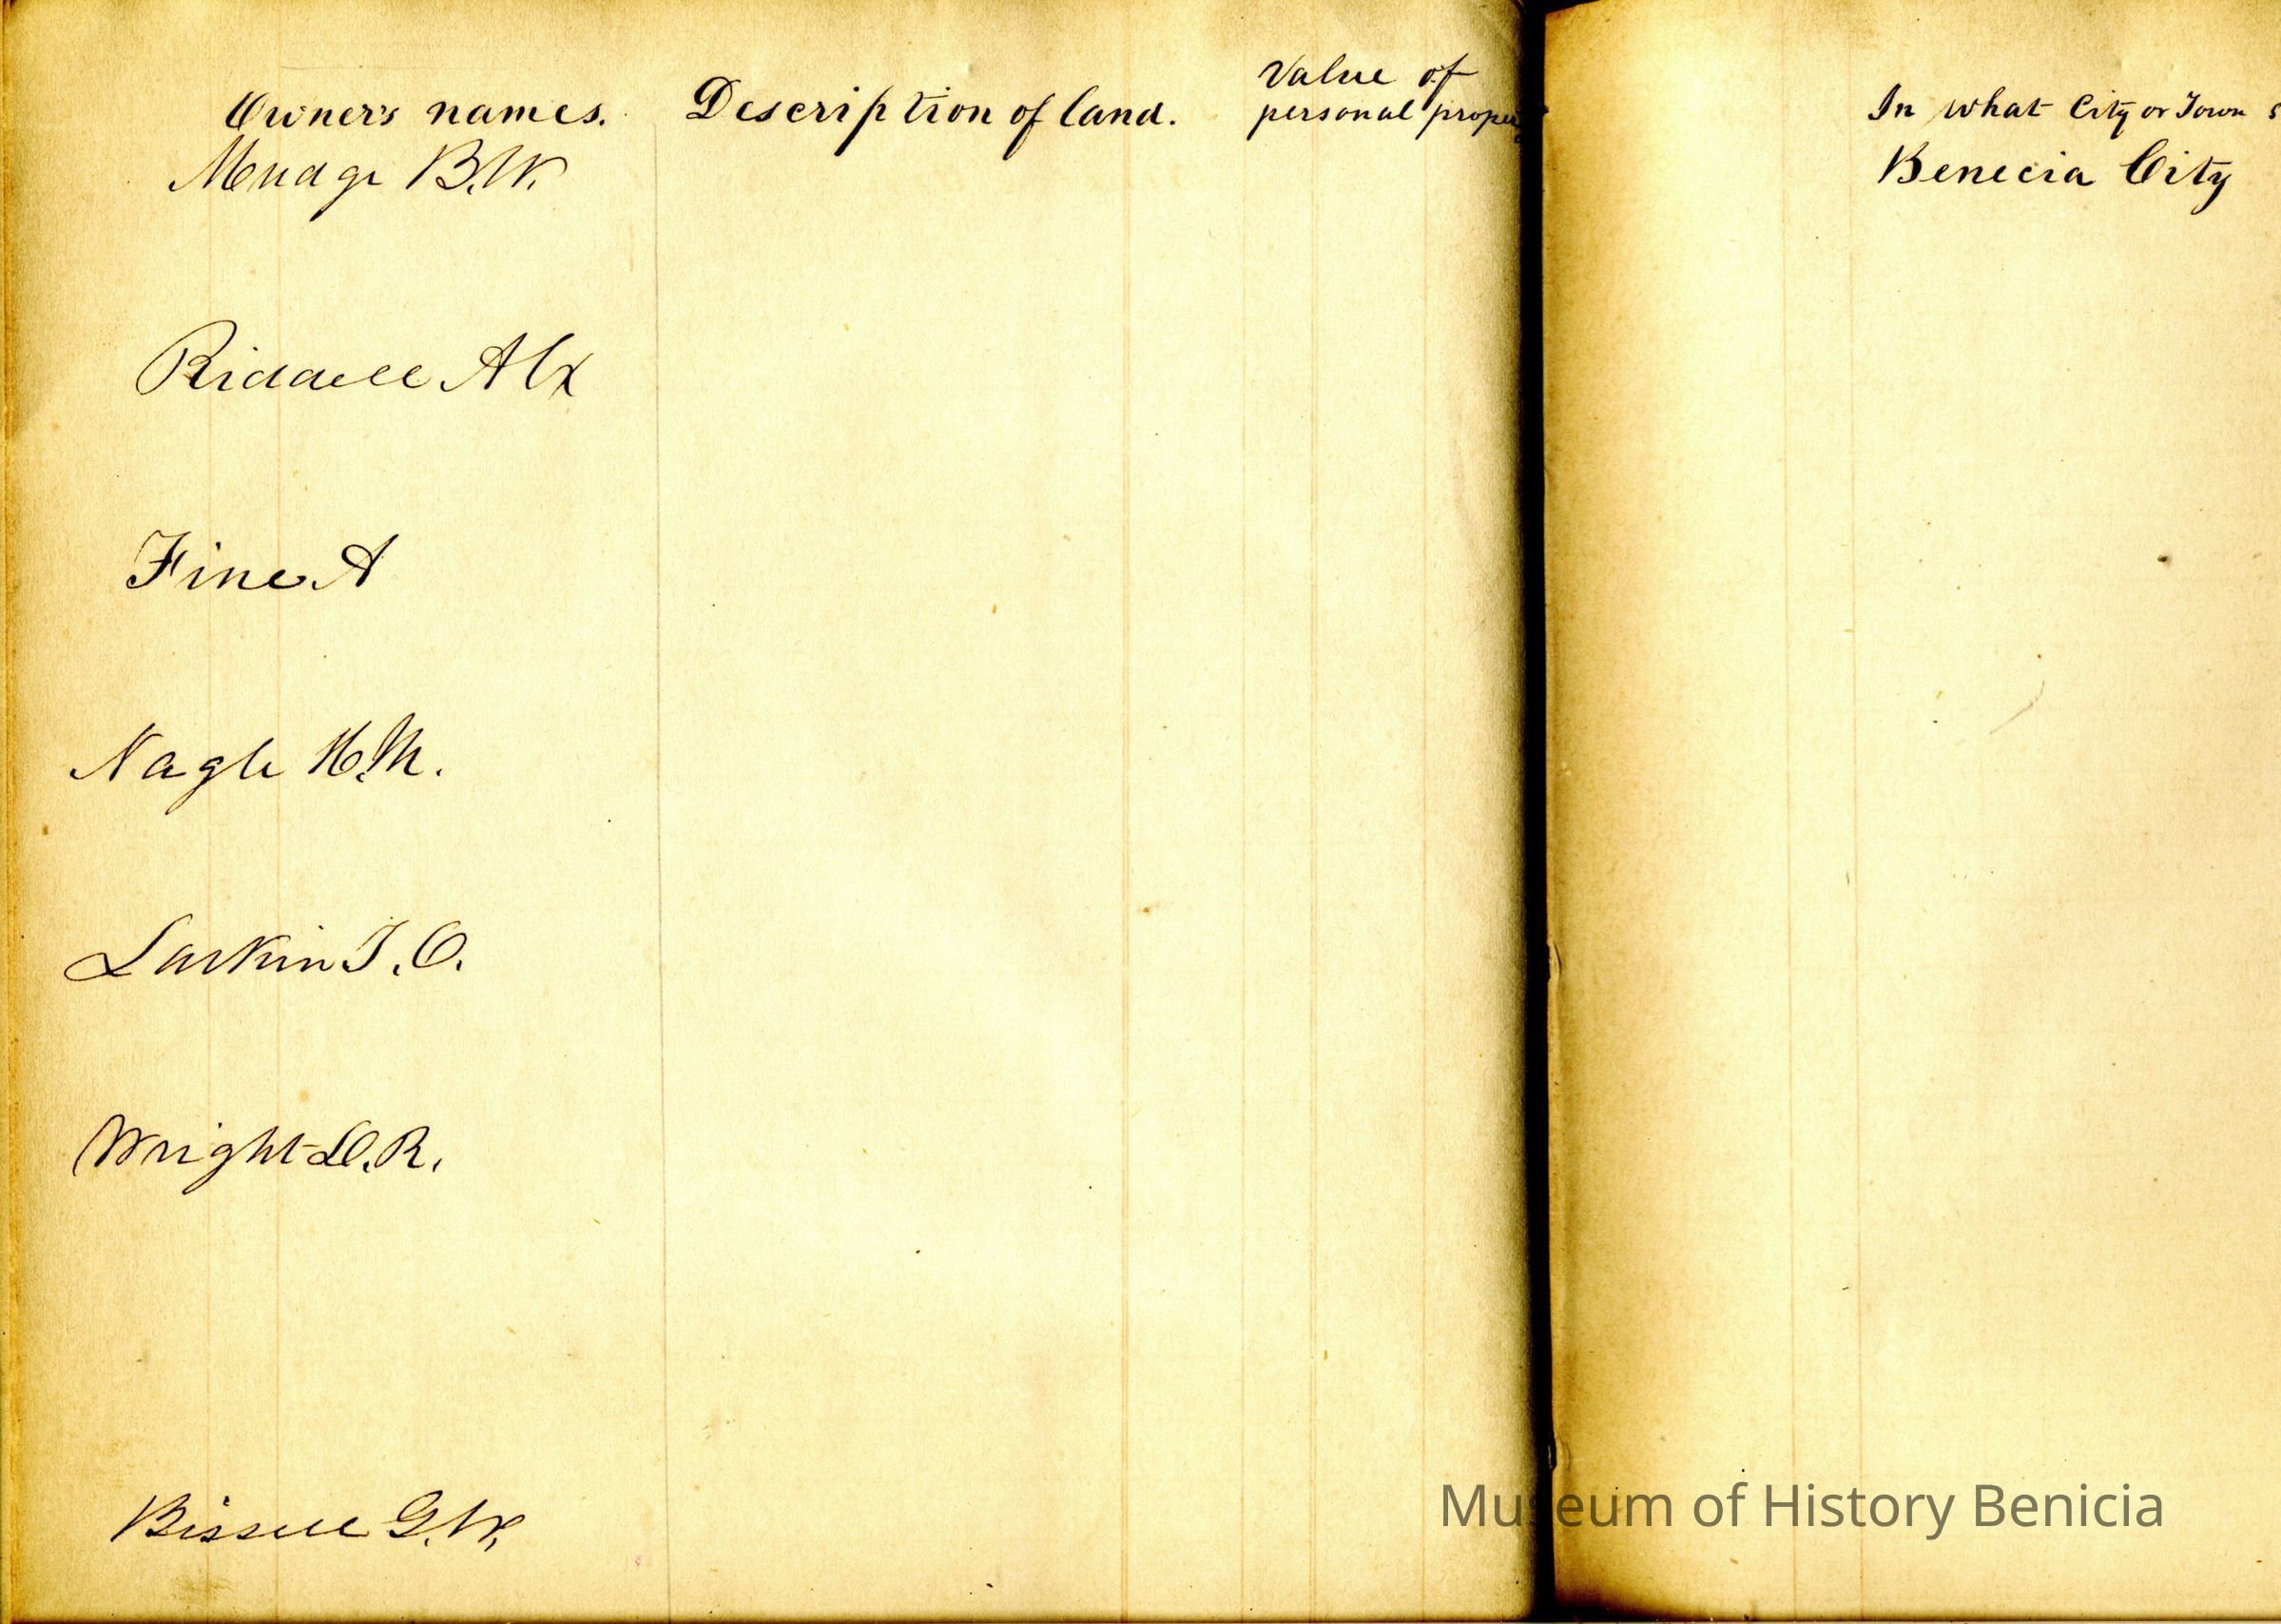 Owner's names. Description of land. Value of
personal proper
In what City or Town s
Mudge B.W.
Benecia City
Riddell Alx
Fine A
Nagle H.M.
Larkin T.O.
Wright D.R.
Bissell G.W.
Museum of History Benicia